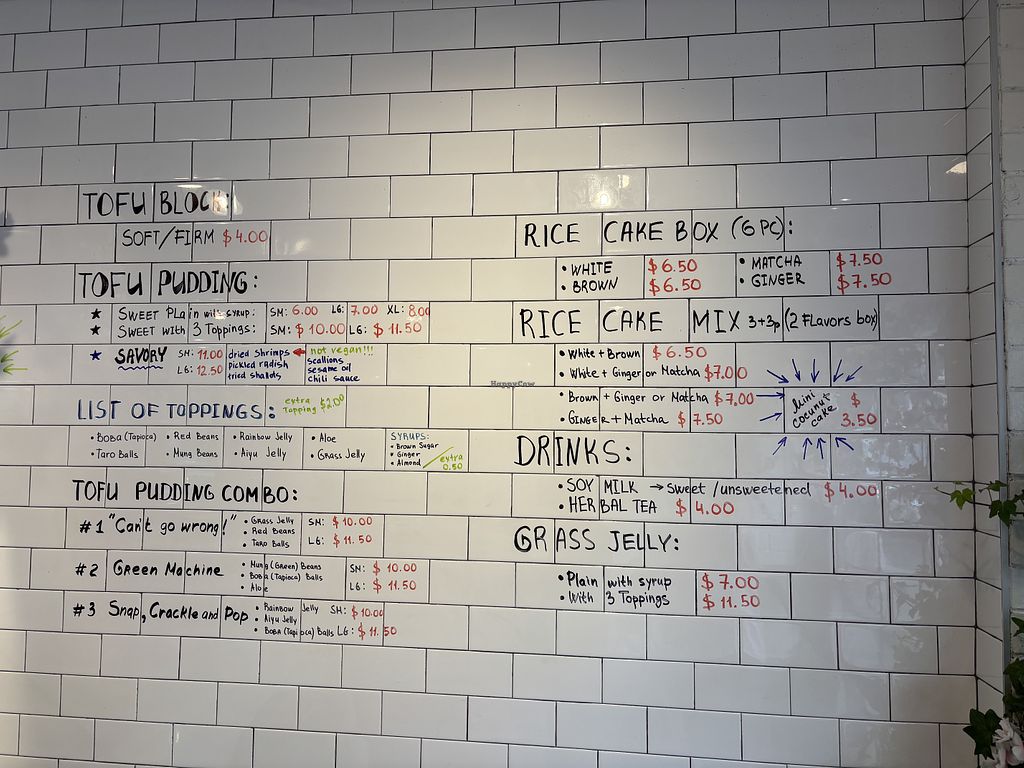 TOFU BLOCK:
SOFT/FIRM $4.00
TOFU PUDDING:
★ SWEET Plain with syrup: SM: 6.00 LG: 7.00 XL: 8.00
★ SWEET with 3 Toppings: SM: $10.00 LG: $11.50
★ SAVORY SM: 11.00 dried shrimps ← not vegan!!!
LG: 12.50 pickled radish scallions
fried shallots sesame oil
chili sauce
LIST OF TOPPINGS: extra topping $2.00
• BOBA (Tapioca) • Red Beans • Rainbow Jelly • Aloe
• Taro Balls • Mung Beans • Aiyu Jelly • Grass Jelly
SYRUPS:
• Brown Sugar
• Ginger
• Almond / extra 0.50
TOFU PUDDING COMBO:
#1 "Can't go wrong!" • Grass Jelly SM: $10.00
• Red Beans
• Taro Balls LG: $11.50
#2 Green Machine • Mung (Green) Beans SM: $10.00
• Boba (Tapioca) Balls
• Aloe LG: $11.50
#3 Snap, Crackle and Pop • Rainbow Jelly SM: $10.00
• Aiyu Jelly
• Boba (Tapioca) Balls LG: $11.50
RICE CAKE BOX (6 PC):
• WHITE $6.50 • MATCHA $7.50
• BROWN $6.50 • GINGER $7.50
RICE CAKE MIX 3+3p (2 Flavors box)
• White + Brown $6.50
• White + Ginger or Matcha $7.00
• Brown + Ginger or Matcha $7.00
• GINGER + Matcha $7.50
Mini coconut cake $3.50
DRINKS:
• SOY MILK → Sweet/unsweetened $4.00
• HERBAL TEA $4.00
GRASS JELLY:
• Plain with syrup $7.00
• With 3 Toppings $11.50
HappyCow